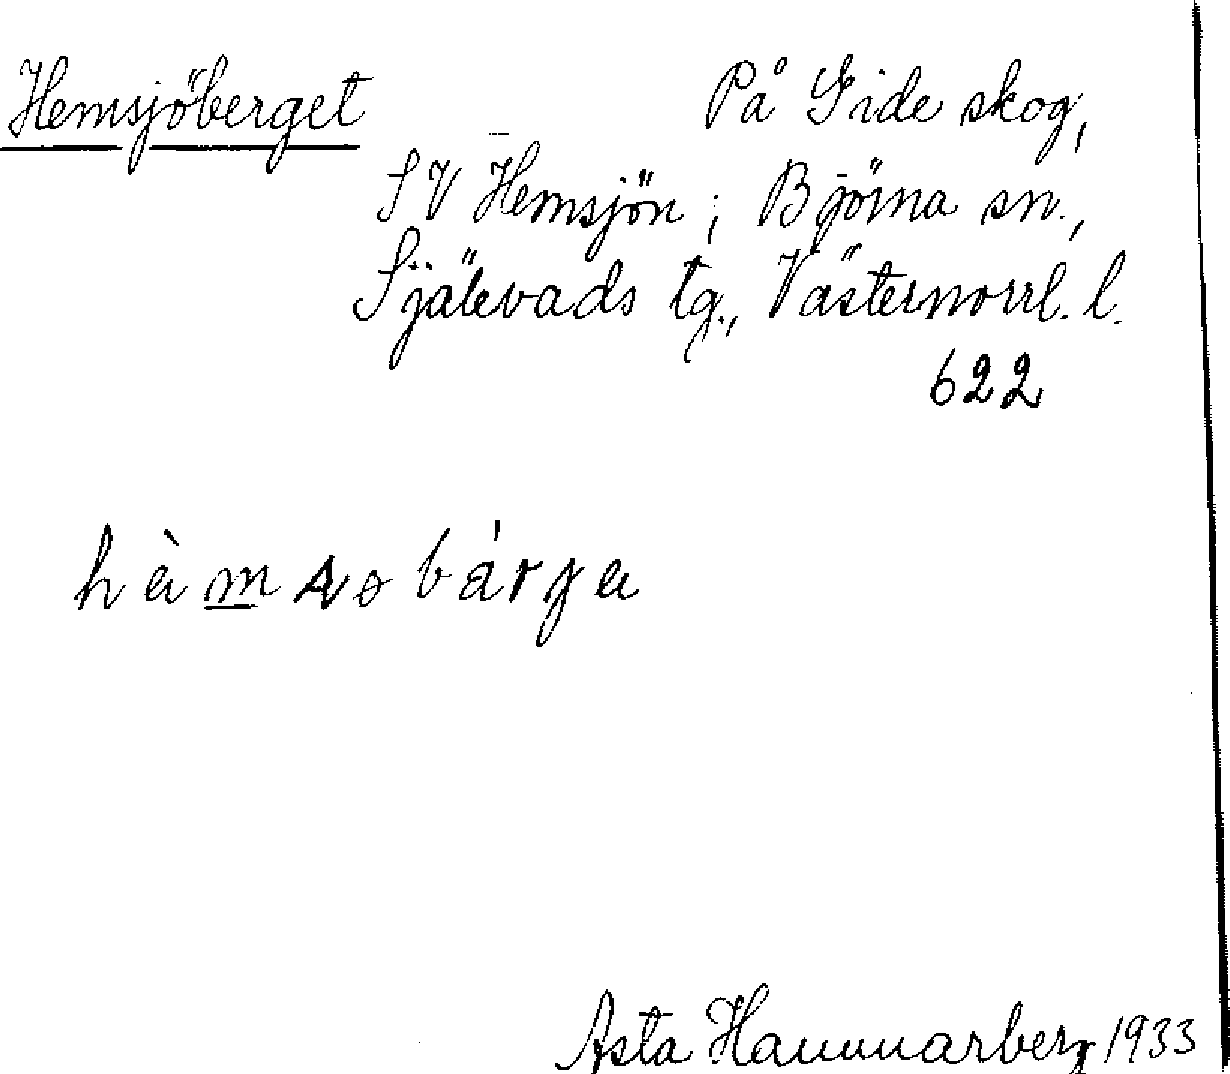 Hemsjöberget På Gide skog,
SV Hemsjön; Björna sn.,
Själevads tg., Västernorrl. l.
622
Asta Hammarberg 1933